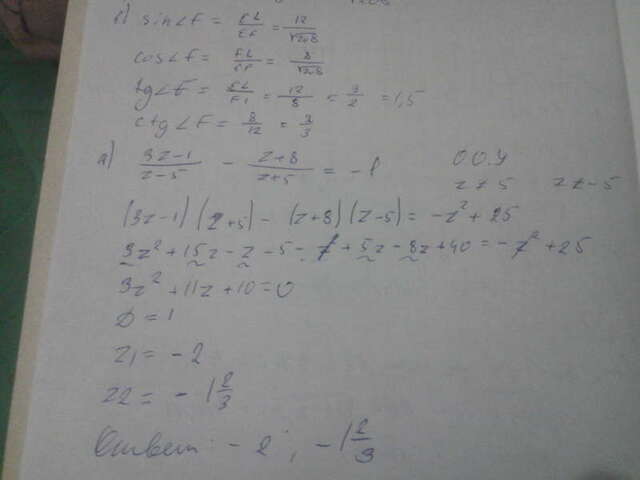 б) sin∠F = EL/EF = 12/√208
cos∠F = FL/EF = 8/√208
tg∠F = EL/FL = 12/8 = 3/2 = 1,5
ctg∠F = 8/12 = 2/3
а) (3z-1)/(z-5) - (z+8)/(z+5) = -1 О О.У
z≠5 z≠-5
(3z-1)(z+5) - (z+8)(z-5) = -z²+25
3z²+15z-z-5-z²+5z-8z+40 = -z²+25
3z²+11z+10=0
D=1
z1 = -2
z2 = -1 2/3
Ответ: -2; -1 2/3